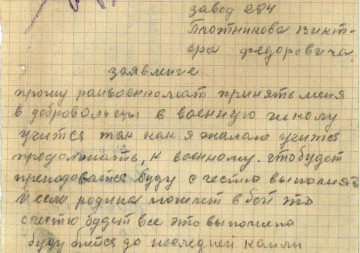 завод 284
Плотникова Викт-
ора Федоровича
заявление
прошу райвоенкомат принять меня
в добровольцы в военную школу
учится так как я желаю учится
продолжать, к военному. чтобудет
преподоватся буду с честю выполнять
и если родина пошлет в бой это
с честю будет все это выполнено
буду битса до последней капли